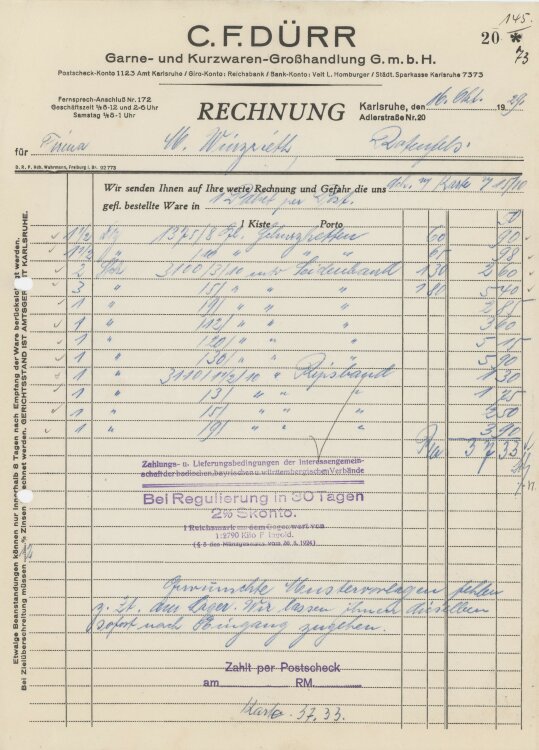 145.
20 * 73
C. F. DÜRR
Garne- und Kurzwaren-Großhandlung G. m. b. H.
Postscheck-Konto 1123 Amt Karlsruhe / Giro-Konto: Reichsbank / Bank-Konto: Veit L. Homburger / Städt. Sparkasse Karlsruhe 7373
Fernsprech-Anschluß Nr. 172
Geschäftszeit ½8-12 und 2-6 Uhr
Samstag ½8-1 Uhr
RECHNUNG
Karlsruhe, den 16. Okt. 1929.
Adlerstraße Nr. 20
für Firma W. Rotenfels.
D. R. P. Nch. Wehrmann, Freiburg i. Br. 92 773
Wir senden Ihnen auf Ihre werte Rechnung und Gefahr die uns Karte 15/10
gefl. bestellte Ware in 1 Paket per Post.
1 Kiste Porto
1½ Dz 1375/8 60 90
1½ " " " " 65 98
2 3100/3/10 mtr Seidenband 130 2 60
3 " 15/ " " 180 5 40
1 " 19/ " " 2 85
1 " 112/ " " 3 60
1 " 120/ " " 5 15
1 " 130/ " " 5 90
1 " 3110/1½/10 " Ripsband 1 30
1 " 13/ " " 1 75
1 " 15/ " " 2 50
1 " 19/ " " 3 90
37 33
Zahlungs- u. Lieferungsbedingungen der Interessengemein-
schaft der badischen, bayrischen u. württembergischen Verbände
Bei Regulierung in 30 Tagen
2% Skonto.
1 Reichsmark = dem Gegenwert von
1:2790 Kilo Feingold.
(§ 3 des Münzgesetzes vom 30. 8. 1924)
Gewünschte Mustervorlagen fehlen
z. Zt. am Lager. Wir lassen ihnen dieselben
sofort nach Eingang zugehen.
Zahlt per Postscheck
am RM.
Karto. 37,33.
Etwaige Beanstandungen können nur innerhalb 8 Tagen nach Empfang der Ware berücksichtigt werden.
Bei Zielüberschreitung müssen % Zinsen berechnet werden. GERICHTSSTAND IST AMTSGERICHT KARLSRUHE.